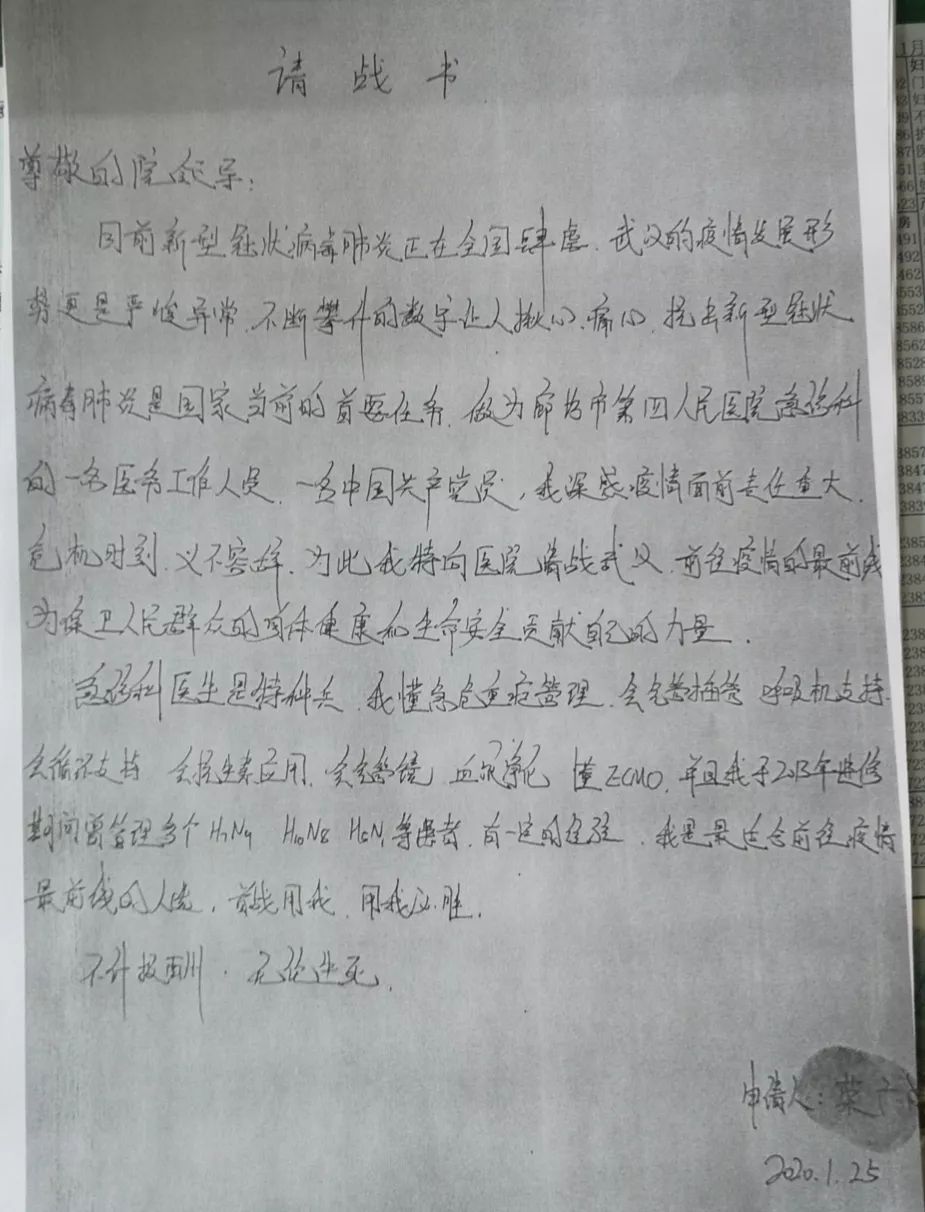 请战书
尊敬的院领导：
目前新型冠状病毒肺炎正在全国肆虐，武汉的疫情发展形
势更是严峻异常，不断攀升的数字让人揪心、痛心，抗击新型冠状
病毒肺炎是国家当前的首要任务，做为廊坊市第四人民医院急诊科
的一名医务工作人员，一名中国共产党员，我深感疫情面前责任重大，
危机时刻，义不容辞，为此我特向医院请战武汉，前往疫情的最前线
为保卫人民群众的身体健康和生命安全贡献自己的力量。
急诊科医生是特种兵，我懂急危重症管理，会气管插管 呼吸机支持，
会循环支持 会抗生素应用，会气管镜 血液净化 懂ECMO，并且我于2013年进修
期间曾管理多个H7N9 H10N8 H5N1等患者，有一定的经验，我是最适合前往疫情
最前线的人选，首战用我，用我必胜。
不计报酬，无论生死。
申请人：
2020.1.25
1月